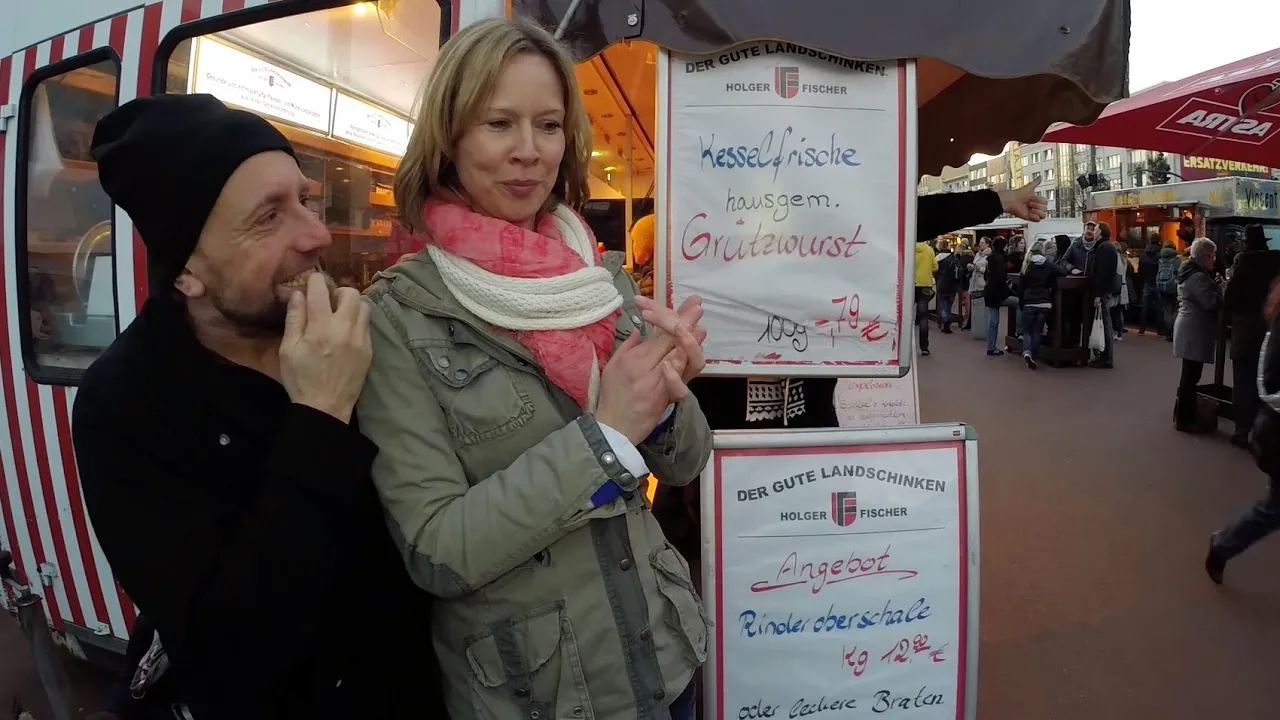 DER GUTE LANDSCHINKEN
HOLGER FISCHER
Kesselfrische
hausgem.
Grützwurst
100g -,79 €
DER GUTE LANDSCHINKEN
HOLGER FISCHER
Angebot
Rinderoberschale
Kg 12.90 €
oder leckere Braten
ASTRA
ERSATZVERKEHR
Vincent